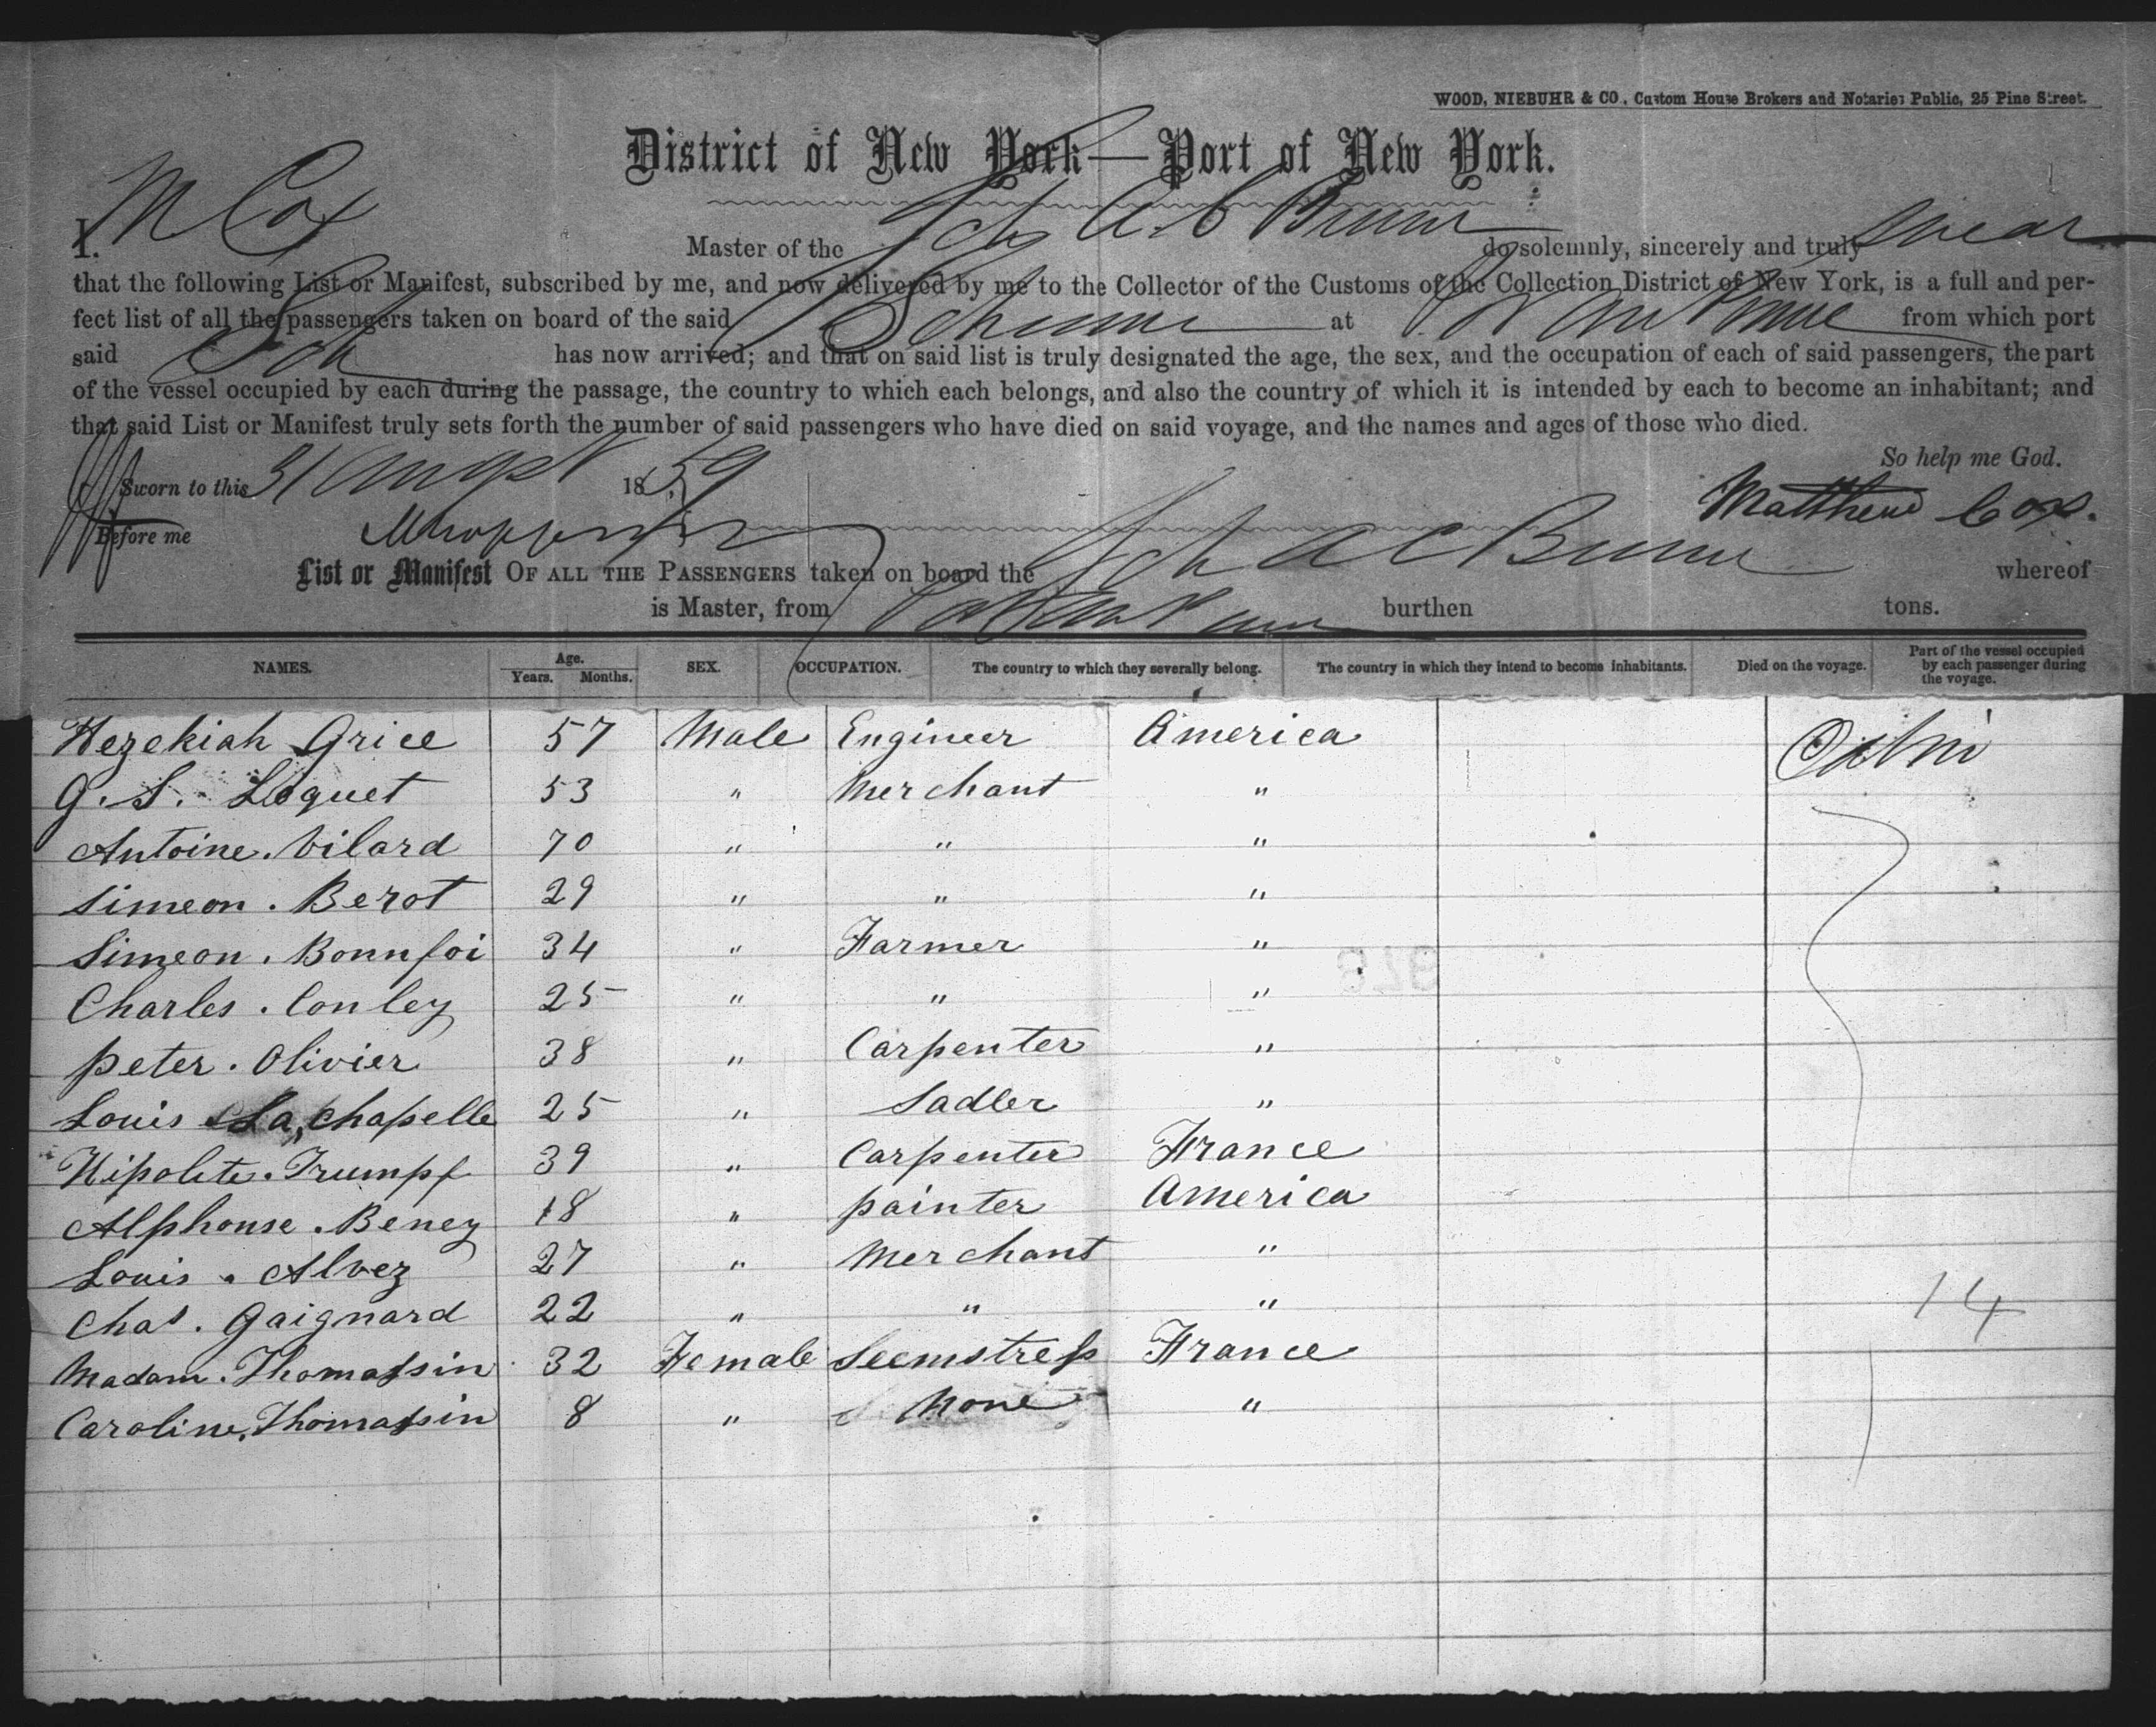 WOOD, NIEBUHR & CO., Custom House Brokers and Notaries Public, 25 Pine Street.
District of New York—Port of New York.
I. M Cox Master of the Sch A. C Brum do solemnly, sincerely and truly swear
that the following List or Manifest, subscribed by me, and now delivered by me to the Collector of the Customs of the Collection District of New York, is a full and per-
fect list of all the passengers taken on board of the said at from which port
said Sch has now arrived; and that on said list is truly designated the age, the sex, and the occupation of each of said passengers, the part
of the vessel occupied by each during the passage, the country to which each belongs, and also the country of which it is intended by each to become an inhabitant; and
that said List or Manifest truly sets forth the number of said passengers who have died on said voyage, and the names and ages of those who died.
So help me God.
Sworn to this 31 August 1859
Matthew Cox.
Before me
List or Manifest OF ALL THE PASSENGERS taken on board the Sch A C whereof
is Master, from burthen tons.
NAMES. Age. Years. Months. SEX. OCCUPATION. The country to which they severally belong. The country in which they intend to become inhabitants. Died on the voyage. Part of the vessel occupied by each passenger during the voyage.
Hezekiah Grice 57 Male Engineer America Cabin
G. S. Loquet 53 " Merchant "
Antoine. Vilard 70 " " "
Simeon. Berot 29 " " "
Simeon. Bonnfoi 34 " Farmer "
Charles. Conley 25 " " "
Peter. Olivier 38 " Carpenter "
Louis La, Chapelle 25 " Sadler "
Hipolite. Trumpf 39 " Carpenter France
Alphonse. Beney 18 " painter America
Louis. Alvez 27 " Merchant "
Chas. Gaignard 22 " " " 14
Madam. Thomassin 32 Female Seemstress France
Caroline. Thomassin 8 " None "